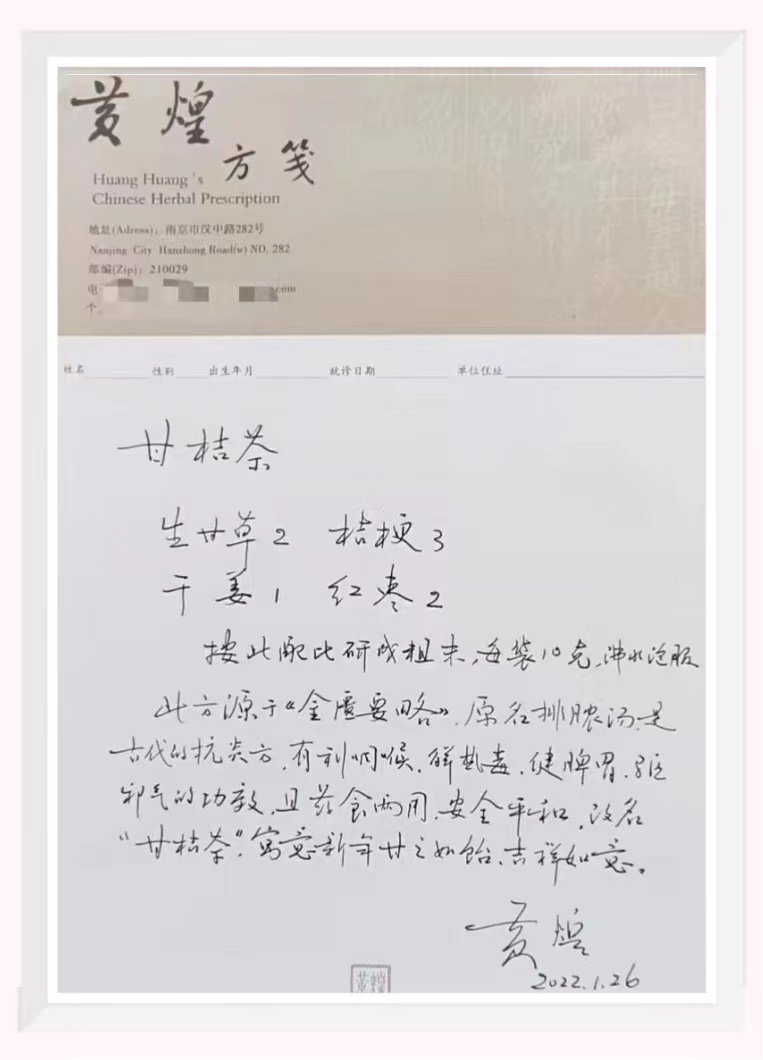 黄煌
方笺
Huang Huang's
Chinese Herbal Prescription
地址(Adress)：南京市汉中路282号
Nanjing City Hanzhong Road(w) NO. 282
邮编(Zip)：210029
电
com
个
姓名 性别 出生年月 就诊日期 单位住址
甘桔茶
生甘草2 桔梗3
干姜1 红枣2
按此配比研成粗末，每袋10克，沸水泡服
此方源于《金匮要略》，原名排脓汤，是
古代的抗炎方，有利咽喉、解热毒、健脾胃、驱
邪气的功效，且药食两用，安全平和，改名
“甘桔茶”，寓意新年甘之如饴、吉祥如意。
黄煌
2022.1.26